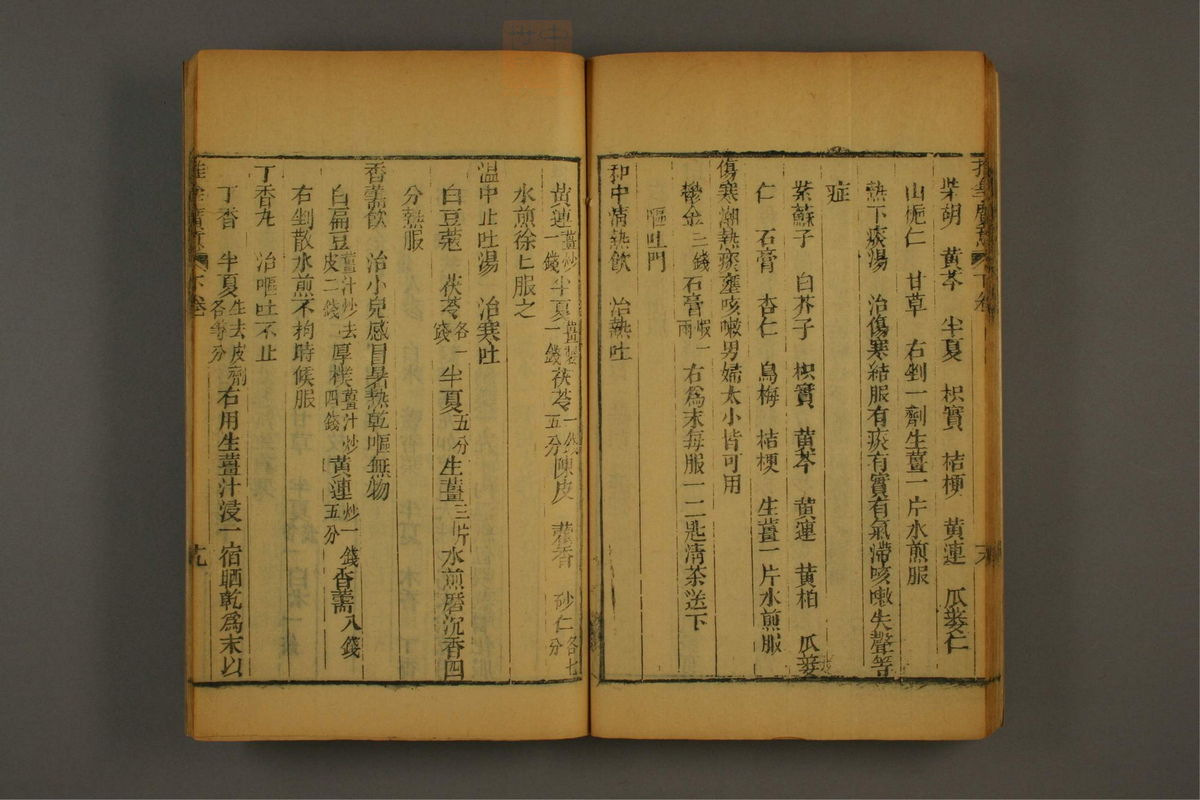 推拿廣意 下卷
柴胡 黃芩 半夏 枳實 桔梗 黃連 瓜蔞仁
山梔仁 甘草 右剉一劑生薑一片水煎服
熱下痰湯 治傷寒結服有痰有實有氣滯咳嗽失聲等
症
紫蘇子 白芥子 枳實 黃芩 黃連 黃柏 瓜蔞
仁 石膏 杏仁 烏梅 桔梗 生薑一片水煎服
傷寒潮熱痰壅咳嗽男婦大小皆可用
鬱金三錢石膏煅一兩 右為末每服一二匙清茶送下
嘔吐門
和中清熱飲 治熱吐
黃連薑炒一錢半夏薑製一錢茯苓一錢五分陳皮 藿香 砂仁各七分
水煎徐徐服之
溫中止吐湯 治寒吐
白豆蔻 茯苓各一錢半夏五分生薑三片水煎磨沉香四
分熱服
香薷飲 治小兒感冒暑熱乾嘔無物
白扁豆薑汁炒去皮二錢厚樸薑汁炒四錢黃連炒一錢五分香薷八錢
右剉散水煎不拘時候服
丁香丸 治嘔吐不止
丁香 半夏生去皮劑各等分右用生薑汁浸一宿晒乾為末以
推拿廣意 下卷